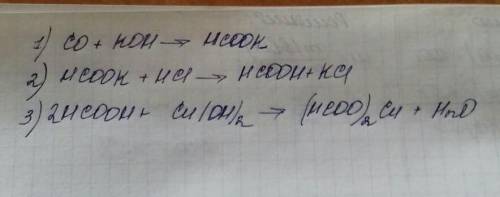 1) CO + KOH → HCOOK
2) HCOOK + HCl → HCOOH + KCl
3) 2HCOOH + Cu(OH)₂ → (HCOO)₂Cu + H₂O